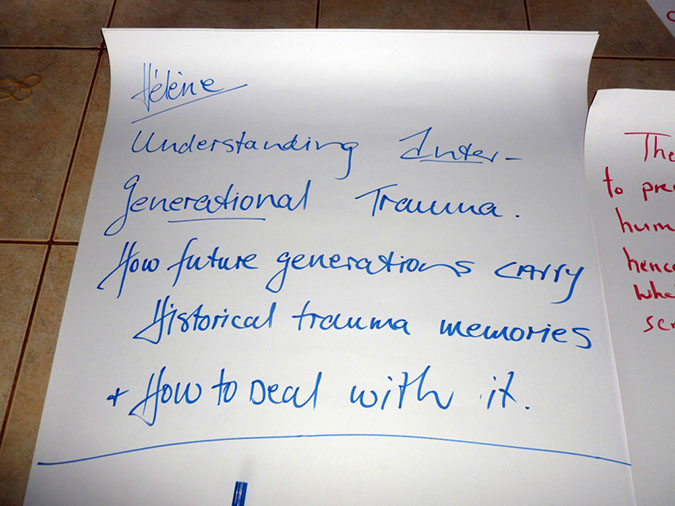 Hélène
Understanding Inter-
generational Trauma.
How future generations carry
Historical trauma memories
+ How to Deal with it.
The
to pre
hum
hence
whe
scr